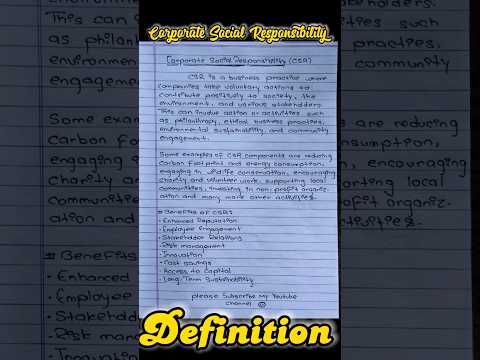 Corporate Social Responsibility
Corporate Social Responsibility (CSR)
CSR is a business practice where
companies take voluntary actions to
contribute positively to society, the
environment, and various stakeholders.
This can involve action or activities such
as philanthropy, ethical business practices,
environmental sustainability, and community
engagement.
Some examples of CSR components are reducing
carbon footprint and energy consumption,
engaging in wildlife conservation, encouraging
charity and volunteer work, supporting local
communities, investing in non-profit organiz-
ation and many more other activities.
# Benefits of CSR:
• Enhanced Reputation
• Employee Engagement
• Stakeholder Relations
• Risk management
• Innovation
• Cost savings
• Access to capital
• Long-Term Sustainability
please Subscribe My Youtube
channel ☺
Definition